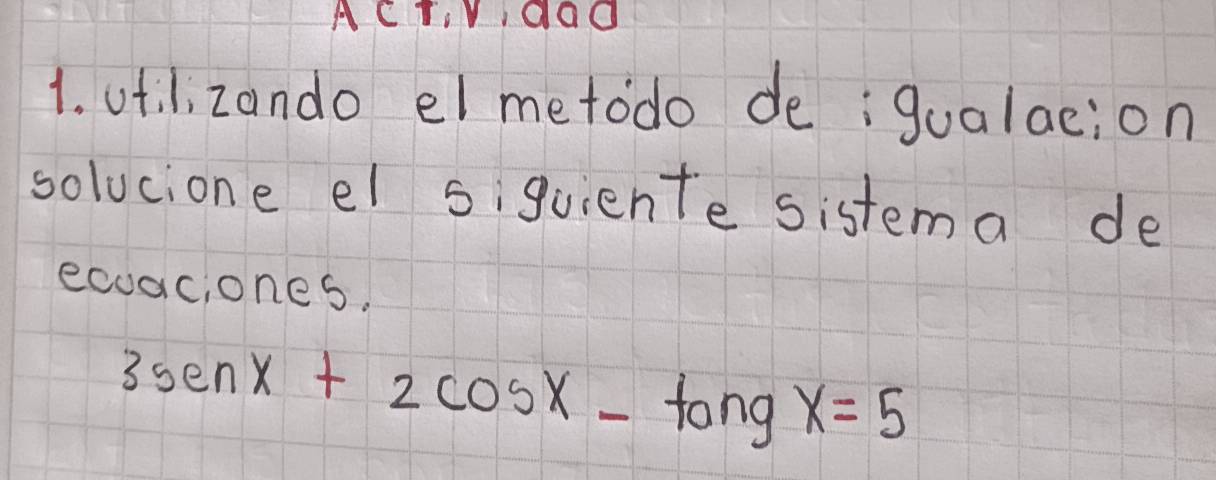 Actividad
1. utilizando el metodo de igualacion
solucione el siguiente sistema de
ecuaciones.
3senx + 2cosx - tang x = 5